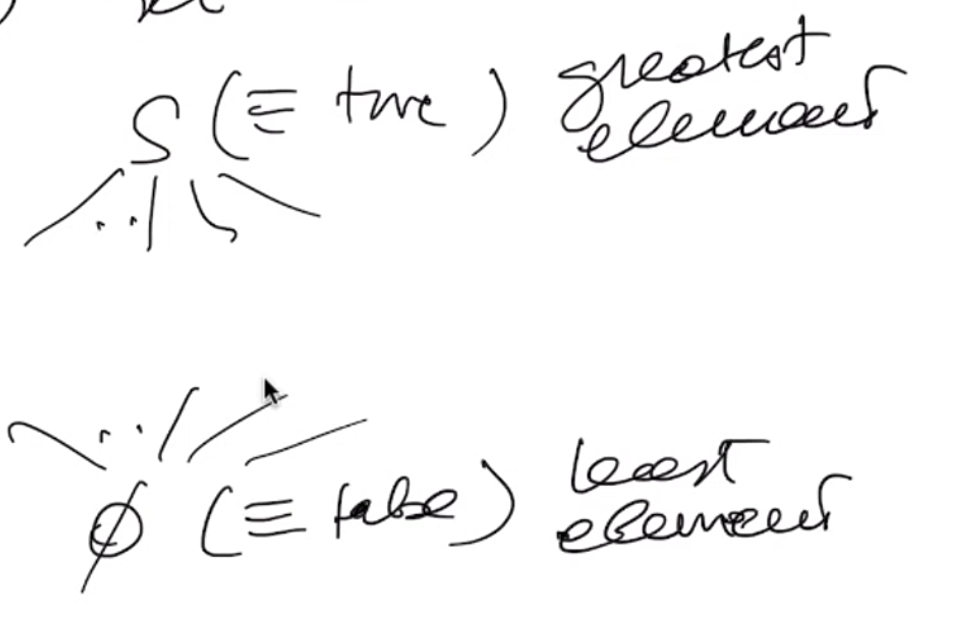 S (≡ true) greatest
element
∅ (≡ false) least
element